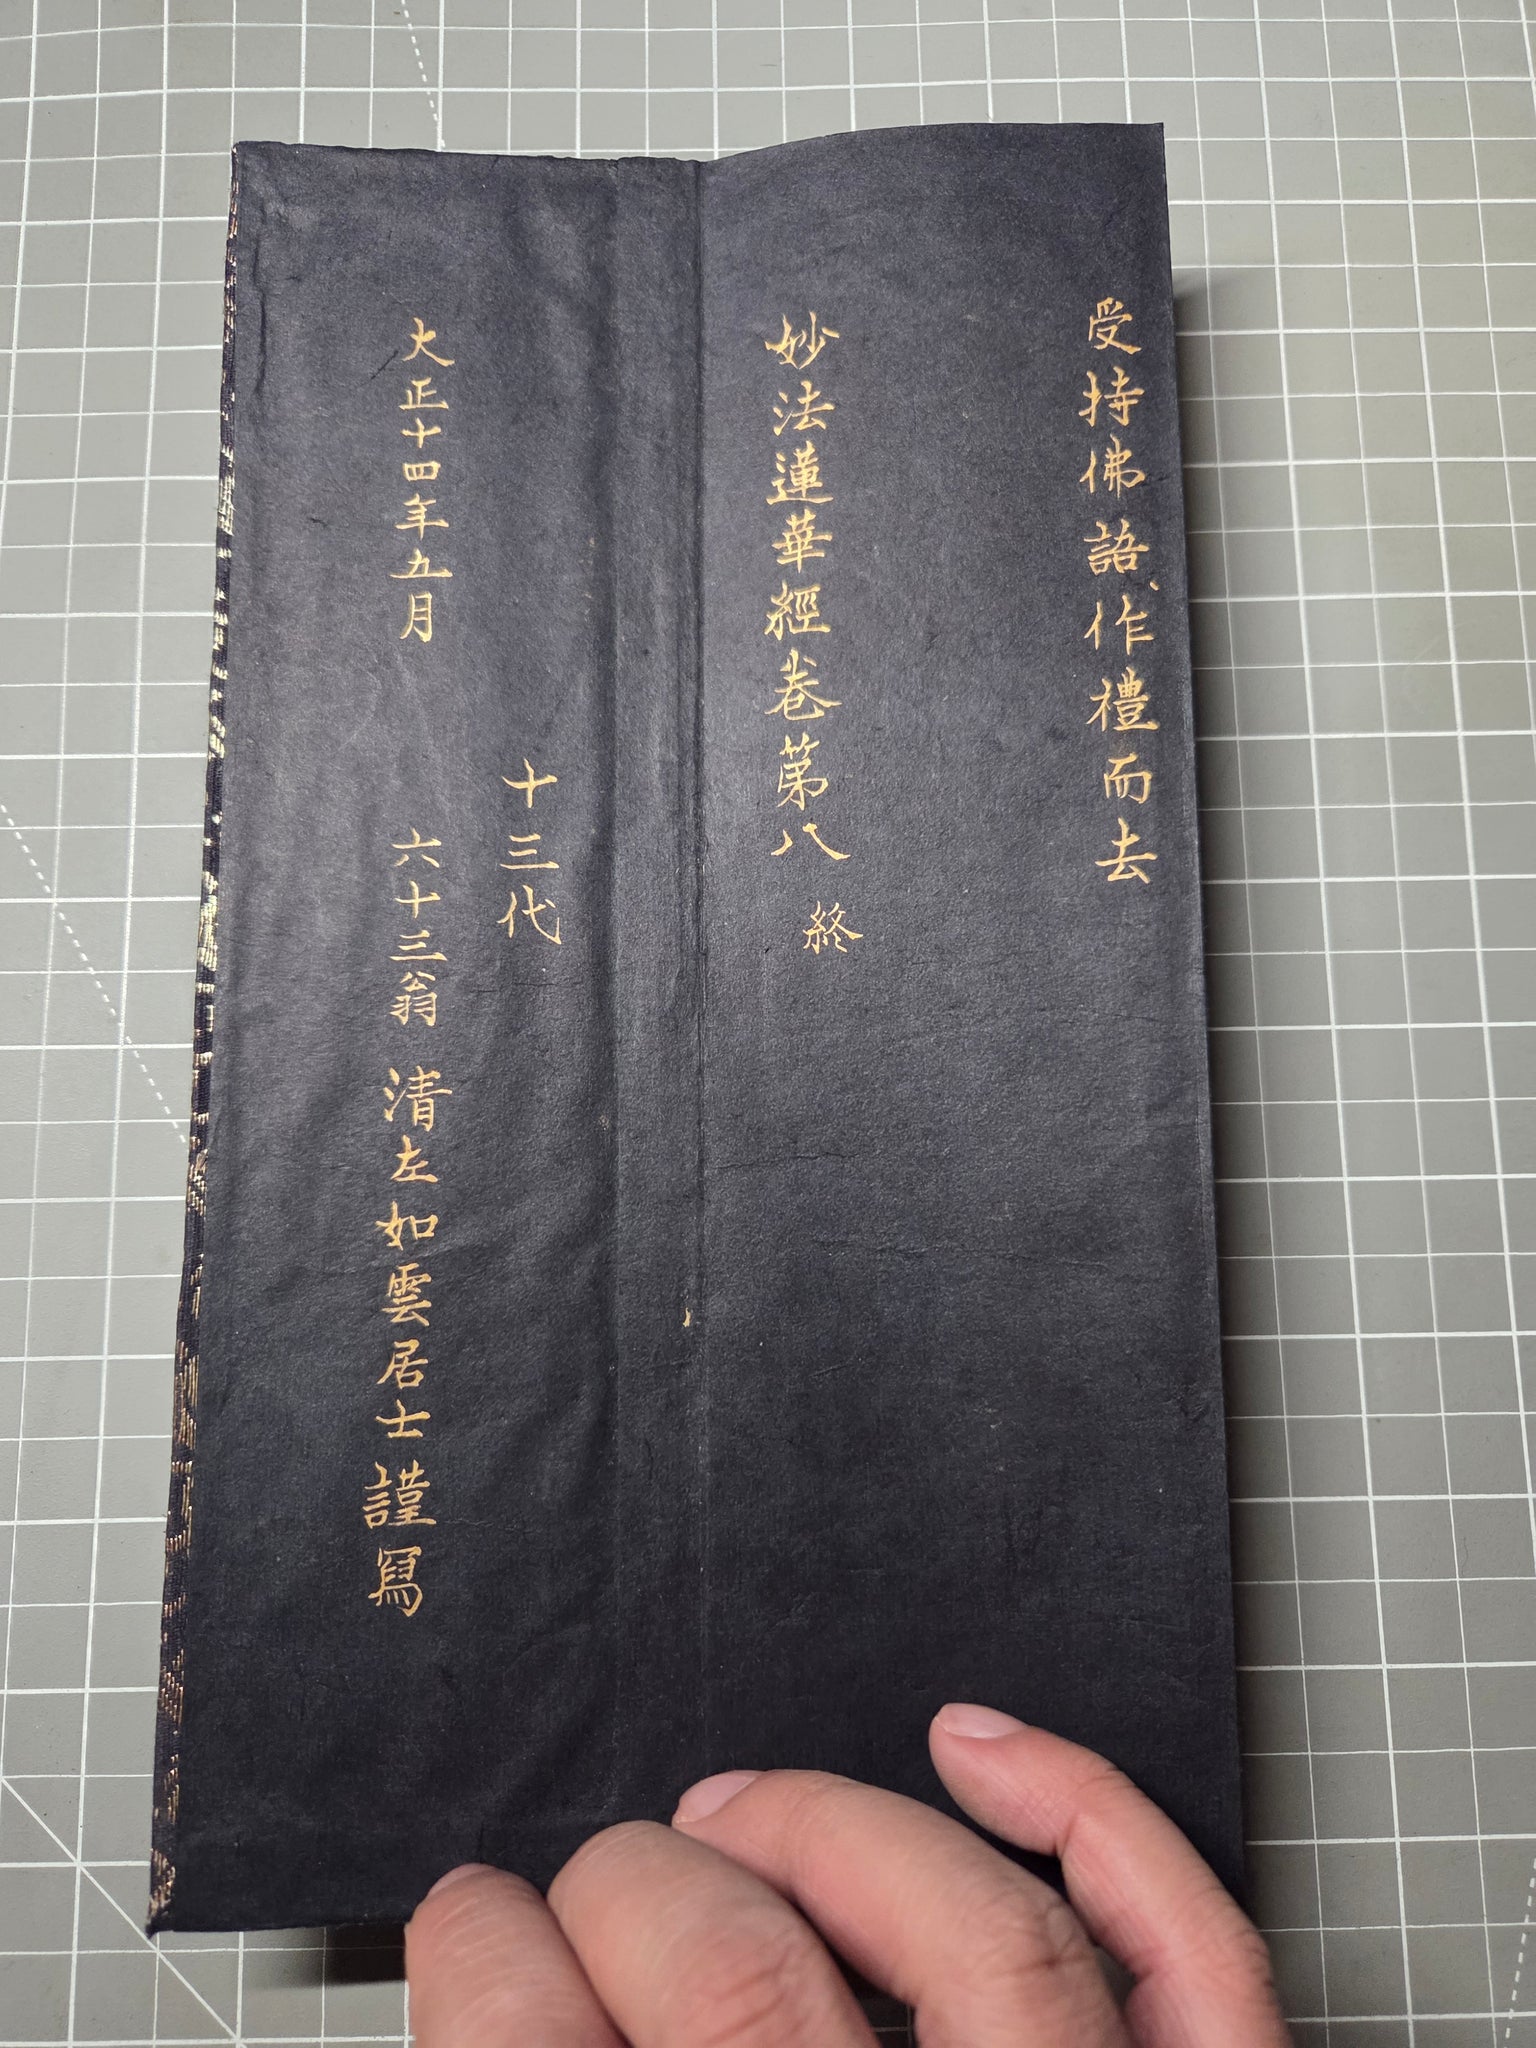 受持佛語、作禮而去
妙法蓮華經卷第八 終
十三代
大正十四年九月 六十三翁 清左如雲居士謹寫